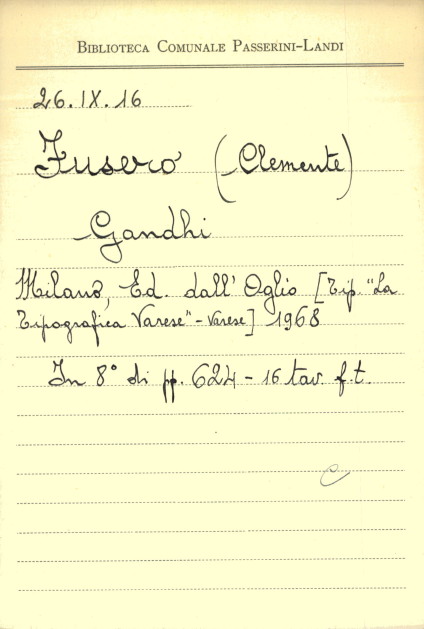 Biblioteca Comunale Passerini-Landi
26.IX.16
Fusero (Clemente)
Gandhi
Milano, Ed. dall'Oglio [Tip. "La
Tipografica Varese" - Varese] 1968
In 8° di pp. 624 - 16 tav. f.t.
C